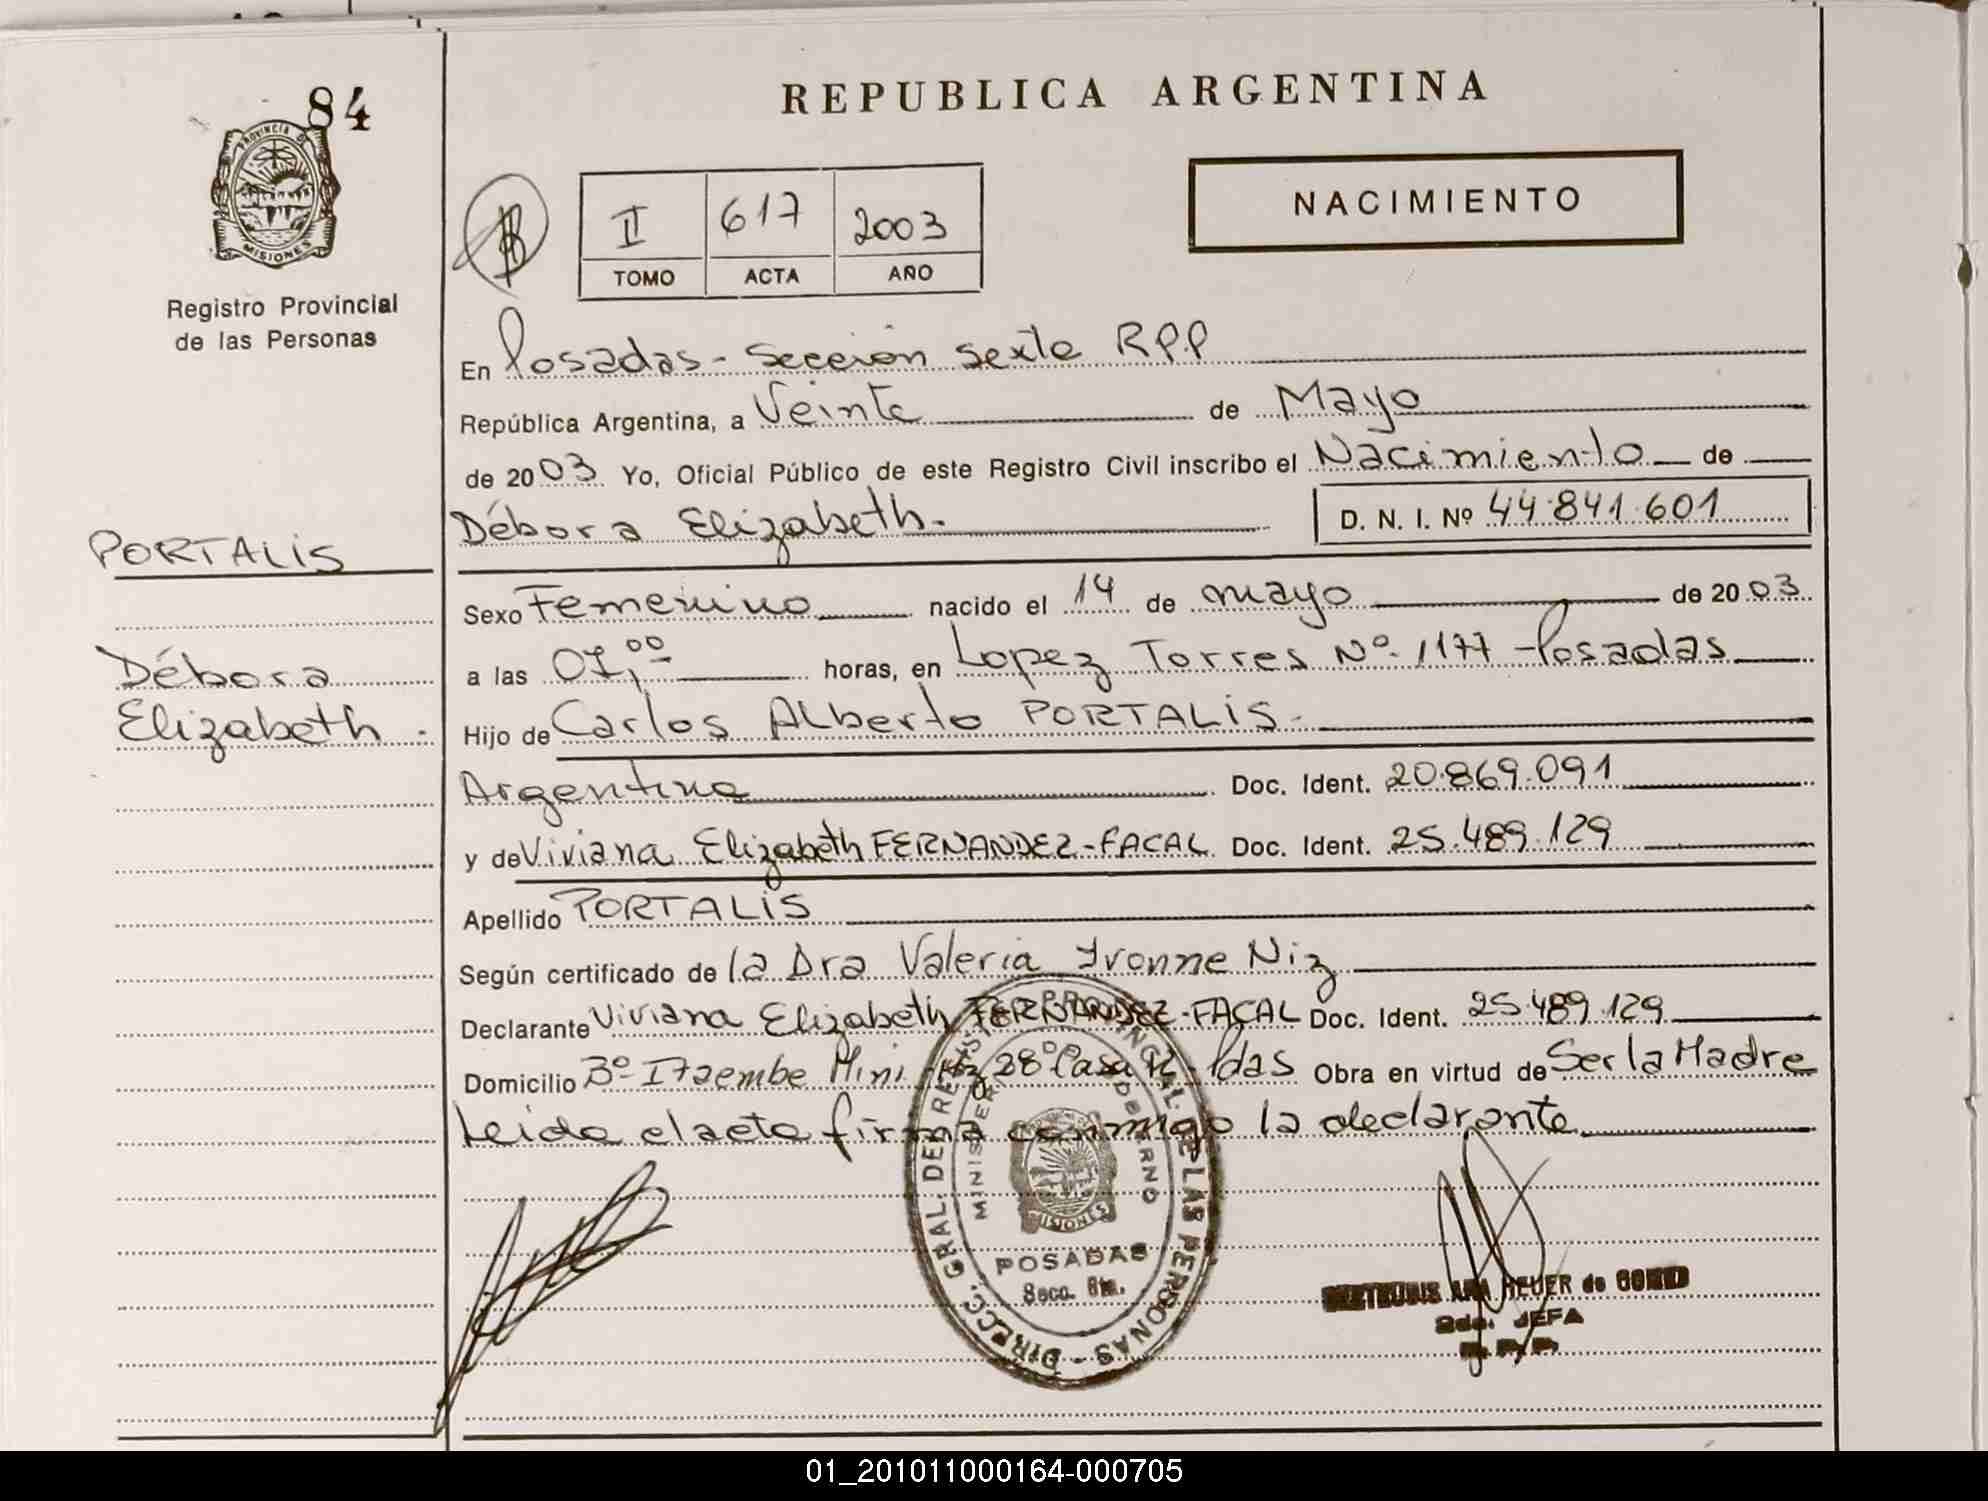 84
PROVINCIA DE
MISIONES
Registro Provincial
de las Personas
REPUBLICA ARGENTINA
NACIMIENTO
II 617 2003
TOMO ACTA AÑO
En Posadas - Sección sexta R.P.P
República Argentina, a Veinte de Mayo
de 2003 Yo, Oficial Público de este Registro Civil inscribo el Nacimiento de
Débora Elizabeth. D. N. I. Nº 44.841.601
PORTALIS
Débora
Elizabeth.
Sexo Femenino nacido el 14 de mayo de 2003
a las 07,00 horas, en Lopez Torres Nº 1177 - Posadas
Hijo de Carlos Alberto PORTALIS.
Argentina Doc. Ident. 20.869.091
y de Viviana Elizabeth FERNANDEZ-FACAL Doc. Ident. 25.489.129
Apellido PORTALIS
Según certificado de la Dra Valeria Yvonne Niz
Declarante Viviana Elizabeth FERNANDEZ-FACAL Doc. Ident. 25.489.129
Domicilio Bº Itaembe Mini Mz 28 Casa 12 - Pdas Obra en virtud de Ser la Madre
Leida el acta firma conmigo la declarante
DIRECC. GRAL. DEL REGISTRO PROVINCIAL DE LAS PERSONAS
MINISTERIO DE GOBIERNO
MISIONES
POSADAS
Secc. 6ta.
ANA HEUER de
2da. JEFA
R.P.P.
01_201011000164-000705